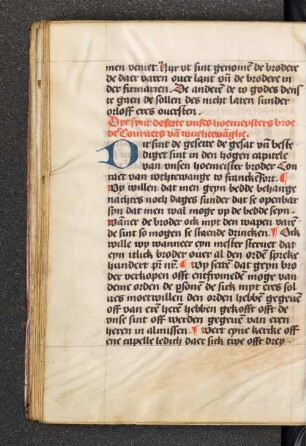 men veniet. Hyr vt sint genomē de brodere
de daer varen ouer lant vn̄ de brodere in
der firmarien. De andere de to godes dens
te gaen de sollen des nicht laten sunder
orloff eres ouersten.
Dyt synt de sette vnses hoemeysters broe
de Conraets vā
Dit sint de gesette de gesat vn̄ beste
diget sint in den hogen capittele
van vnsen hoemeister broder Con
raet van to franckfort. ¶
Wy willen dat men geyn bedde behange
nachtes noch dages sunder dat se openbar
syn dat men wal moge vp de bedde seyn.
wāneer de broder ock myt den wapen varē
de sint so mogen se staende drincken. ¶ Ock
wille wy wanneer eyn mester steruet dat
eyn itlick broder ouer al den ordē spreke
hundert pr̄ nr̄. ¶ Wy setten dat geyn bro
der verkopen offt entfromedē moge van
deme orden de psonē de sick myt eres sol
ues moetwillen den orden hebbē gegeuē
off van eren herē hebben gekofft offt de
vnse sint off werden gegeuē van eren
heren in almissen. ¶ Weer eyne kercke off
ene capelle ledich daer sick twe offt drey